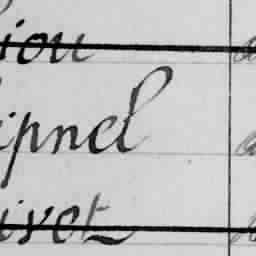 iou
ipnel
ivot